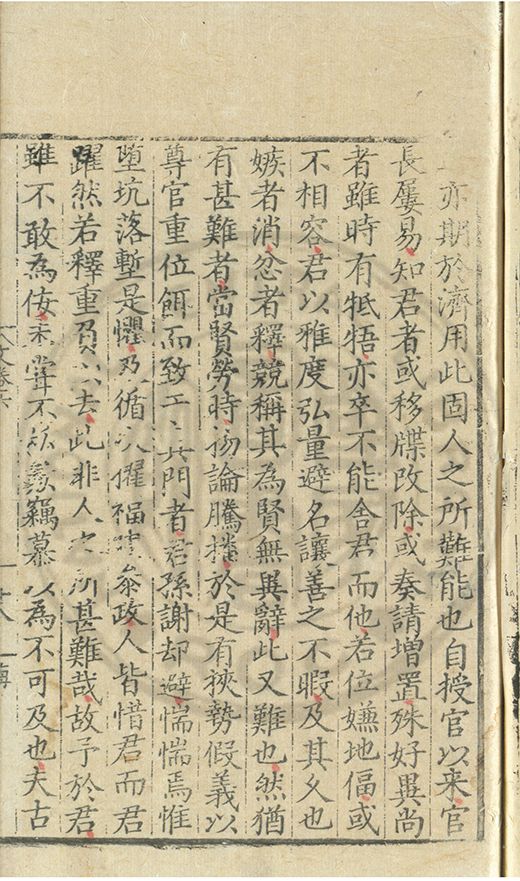 亦期於濟用此固人之所難能也自授官以来官
長屢易知君者或移牒改除或奏請增置殊好異尚
者雖時有牴牾亦卒不能舍君而他若位嫌地偪或
不相容君以雅度弘量避名讓善之不暇及其久也
嫉者消忿者釋競稱其為賢無異辭此又難也然猶
有甚難者當賢勞時物論騰搂於是有挾勢假義以
尊官重位餌而致工兵門者君孫謝却避惴惴焉惟
墮坑落塹是懼乃循次擢福建叅政人皆惜君而君
躍然若釋重負以去此非人之所甚難哉故予於君
雖不敢為佞未嘗不竊慕以為不可及也夫古